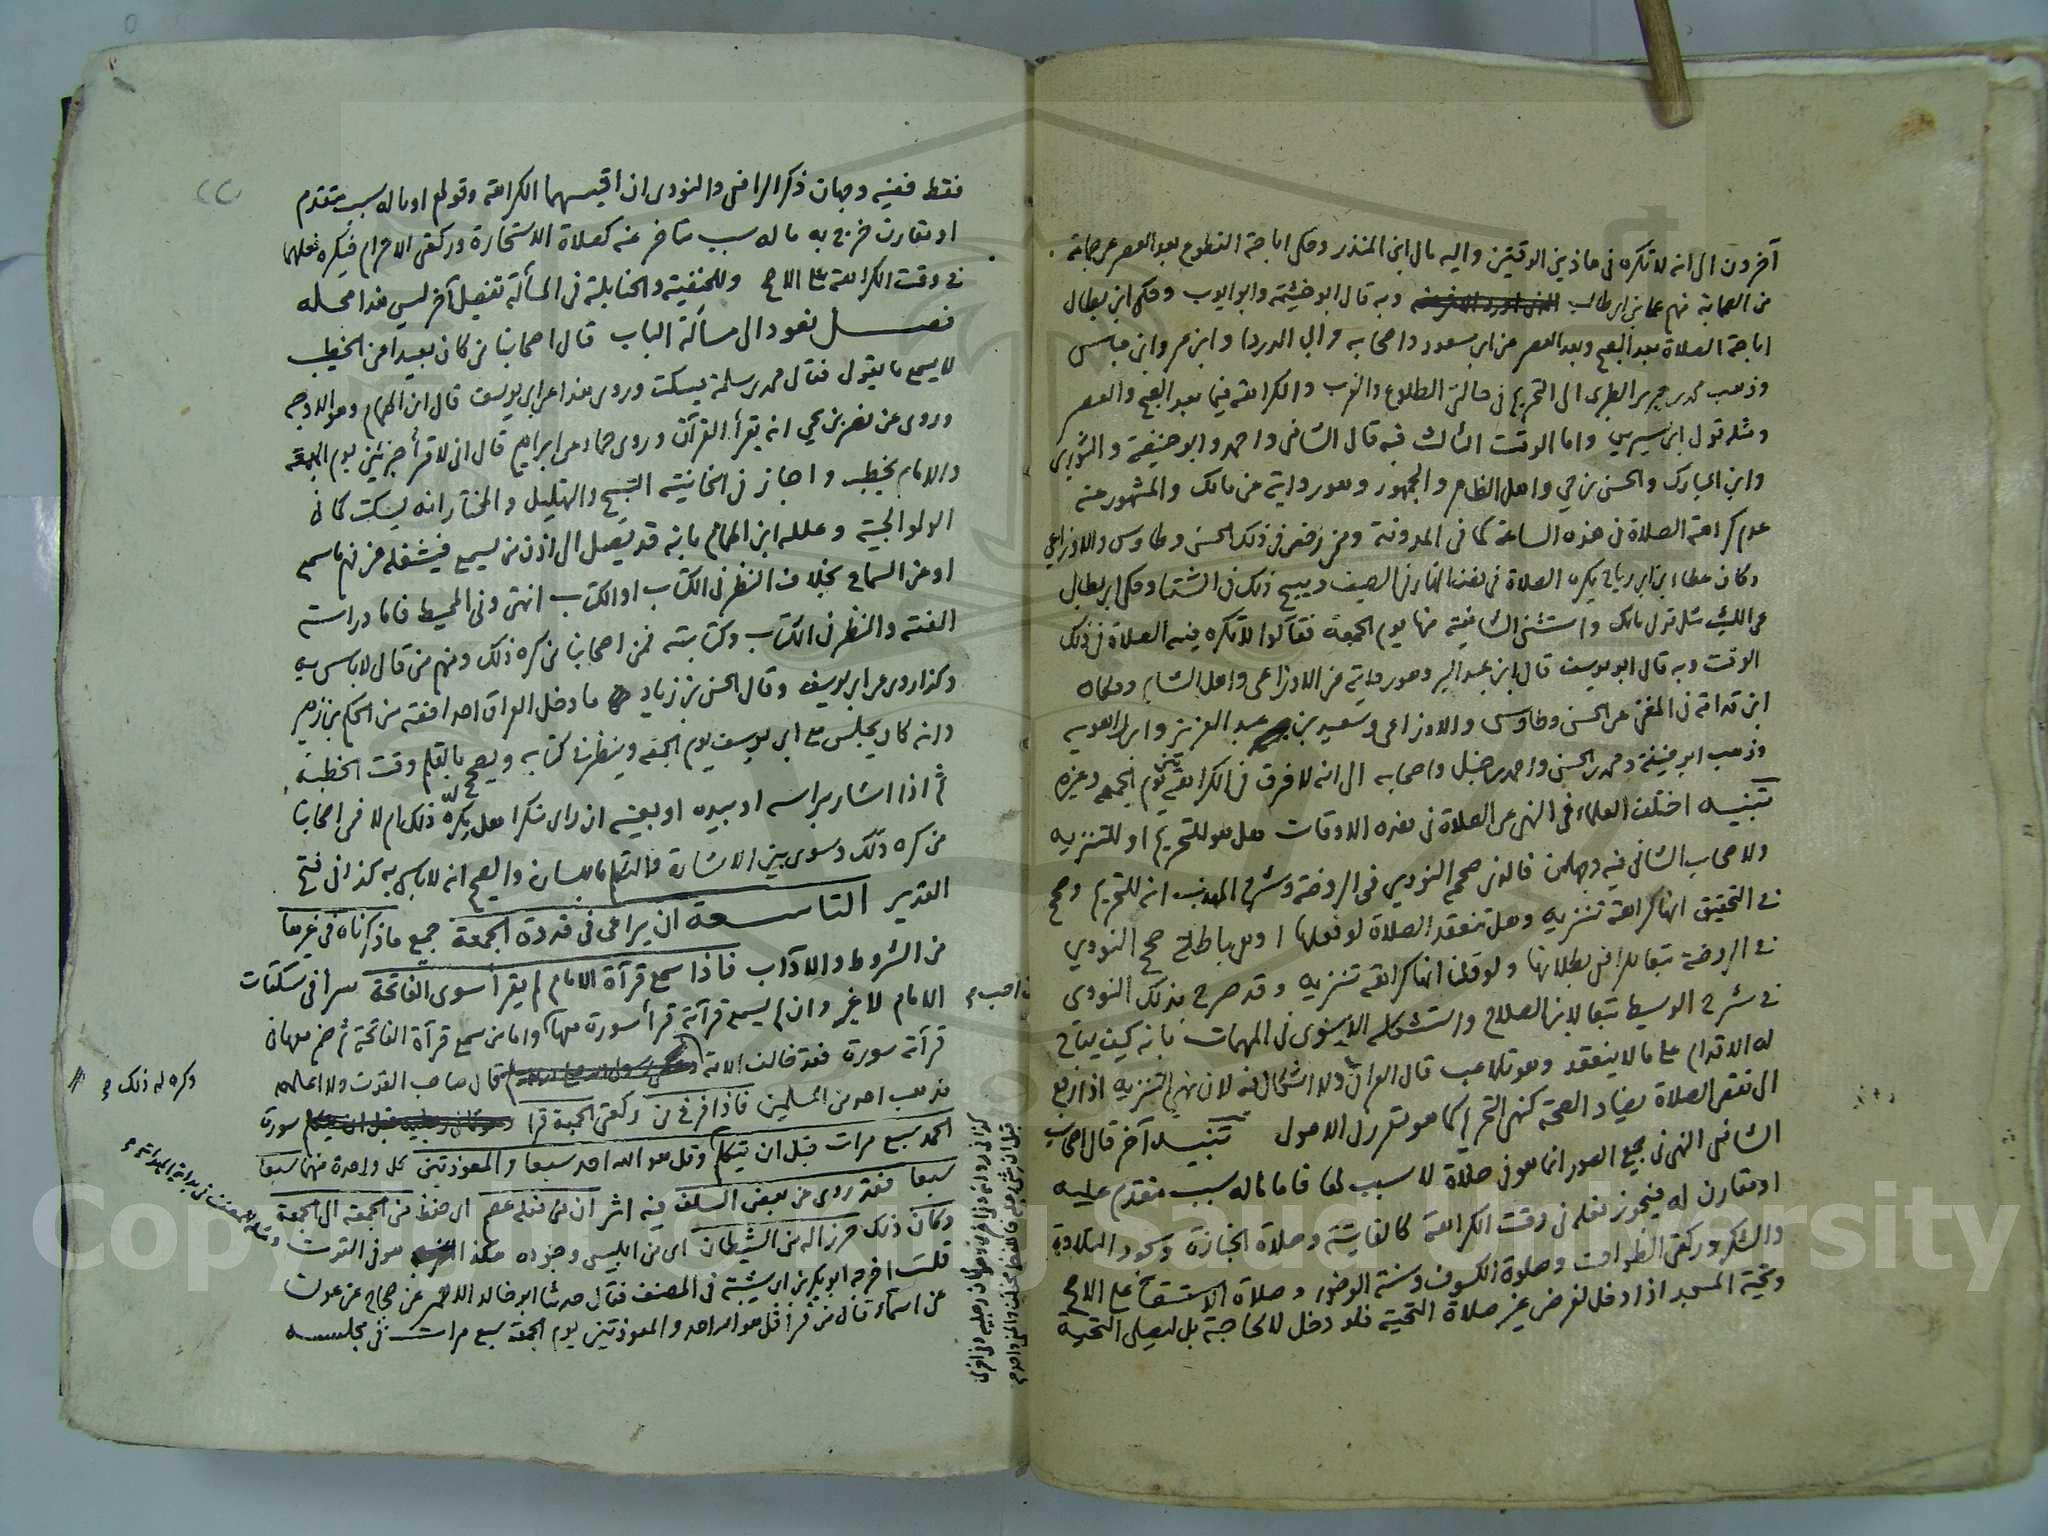 آخرون الى انه لا تكره في هاذين الوقتين واليه مال ابن المنذر وحكى اباحة التطوع بعد العصر عن جماعة
من الصحابة منهم على بن ابى طالب وبه قال ابو خيثمة وابو ايوب وحكى ابن بطال
اباحة الصلاة بعد الصبح وبعد العصر عن ابن مسعود واصحابه وابي الدرداء وابن عمر وابن عباس
وذهب محمد بن جرير الطبرى الى التحريم في حالتى الطلوع والغروب والكراهة فيما بعد الصبح والعصر
ومثله قول ابن سيرين واما الوقت الثالث فبه قال الشافعى واحمد وابو حنيفة والثورى
وابن المبارك والحسن بن حي واهل الظاهر والجمهور وهو رواية عن مالك والمشهور عنه
عدم كراهة الصلاة في هذه الساعة كما في المدونة وممن رخص في ذلك الحسن وطاوس والاوزاعي
وكان عطاء ابن ابى رباح يكره الصلاة في نصف النهار في الصيف ويبيح ذلك في الشتا وحكى ابن بطال
عن الليث مثل قول مالك واستثنى الشافعية منها يوم الجمعة فقالوا لا تكره فيه الصلاة في ذلك
الوقت وبه قال ابو يوسف قال ابن عبد البر وهو رواية عن الاوزاعى واهل الشام وحكاه
ابن قدامة في المغنى عن الحسن وطاوس والاوزاعى وسعيد بن عبد العزيز وابن راهويه
وذهب ابو حنيفة ومحمد بن الحسن واحمد بن حنبل واصحابه الى انه لا فرق في الكراهة بين يوم الجمعة وغيره
تنبيه اختلف العلماء في النهى عن الصلاة في هذه الاوقات هل هو للتحريم او للتنزيه
ولاصحاب الشافعى فيه وجهان فالذى صححه النووي في الروضة وشرح المهذب انه للتحريم وصحح
في التحقيق انها كراهة تنزيه وهل تنعقد الصلاة لو فعلها او هى باطلة صحح النووي
في الروضة تبعا للرافعى بطلانها ولو قلنا انها كراهة تنزيه وقد صرح بذلك النووى
في شرح الوسيط تبعا لابن الصلاح واستشكله الاسنوى في المهمات بانه كيف يباح
له الاقدام على ما لا ينعقد وهو تلاعب قال العراقى ولا اشكال فيه لان نهى التنزيه اذا رجع
الى نفس الصلاة يضاد الصحة كنهى التحريم كما هو مقرر في الاصول تنبيه آخر قال اصحاب
الشافعى النهى في جميع الصور انما هو في صلاة لا سبب لها فاما ما له سبب متقدم عليه
او مقارن له فيجوز فعله في وقت الكراهة كالفايتة وصلاة الجنازة وسجود التلاوة
والشكر وركعتى الطواف وصلوة الكسوف وسنة الوضوء وصلاة الاستسقاء على الاصح
وتحية المسجد اذا دخل لغرض غير صلاة التحية فلو دخل لا لحاجة بل ليصلى التحية
فقط ففيه وجهان ذكر الرافعى والنووى ان اقيسهما الكراهة وقولهم او ما له سبب متقدم
او مقارن خرج به ما له سبب متأخر عنه كصلاة الاستخارة وركعتى الاحرام فيكره فعلهما
في وقت الكراهة على الاصح وللحنفية والحنابلة في المسألة تفصيل آخر ليس هذا محله
فصل نعود الى مسألة الباب قال اصحابنا من كان بعيدا من الخطيب
لا يسمع ما يقول فقال محمد بن سلمة يسكت وروى هذا عن ابى يوسف قال ابن الهمام وهو الاوجه
وروى عن نصر بن يحيى انه يقرأ القرآن وروى حماد عن ابراهيم قال انى لاقرأ جزئين يوم الجمعة
والامام يخطب واجاز في الخانية التسبيح والتهليل والمختار انه يسكت كما في
الولوالجية وعلله ابن الهمام بانه قد يصل الى اذن من يسمع فيشغله عن فهم ما سمع
او عن السماع بخلاف النظر في الكتاب او الكتاب انتهى وفي المحيط فاما دراسة
الفقه والنظر في الكتاب وكتابته فمن اصحابنا من كره ذلك ومنهم من قال لا باس به
وكذا روى عن ابى يوسف وقال الحسن بن زياد ما دخل العراق احد افقه من الحكم بن زهير
وانه كان يجلس مع ابى يوسف يوم الجمعة وينظر في كتابه ويصحح بالقلم وقت الخطبة
ثم اذا اشار براسه او بيده او بعينه ان راى منكرا هل يكره له ذلك ام لا فمن اصحابنا
من كره ذلك وسوى بين الاشارة والتكلم باللسان والصحيح انه لا باس به كذا في فتح
القدير التاسعة ان يراعى في قدوة الجمعة جميع ما ذكرناه في غيرها
من الشروط والاداب فاذا سمع قرآة الامام لم يقرأ سوى الفاتحة سرا في سكتات
الامام لا غير وان لم يسمع قرآته قرأ سورة معها واما من سمع قرآة الفاتحة ثم ضم معها في
قرآته سورة فقد خالف الامة قال صاحب القوت ولا اعلمه
مذهب احد من المسلمين فاذا فرغ من ركعتى الجمعة قرا سورة
الحمد سبع مرات قبل ان يتكلم وقل هو الله احد سبعا والمعوذتين كل واحدة منهما سبعا
سبعا فقد روى عن بعض السلف فيه اثر ان من فعله عصم اى حفظ من الجمعة الى الجمعة
وكان ذلك حرزا له من الشيطان اى من ابليس وجنوده هكذا هو في القوت
قلت اخرجه ابو بكر بن ابى شيبة في المصنف فقال حدثنا ابو خالد الاحمر عن حجاج عن عون
عن اسماء قالت من قرأ قل هو الله احد والمعوذتين يوم الجمعة سبع مرات في مجلسه
وكره له ذلك